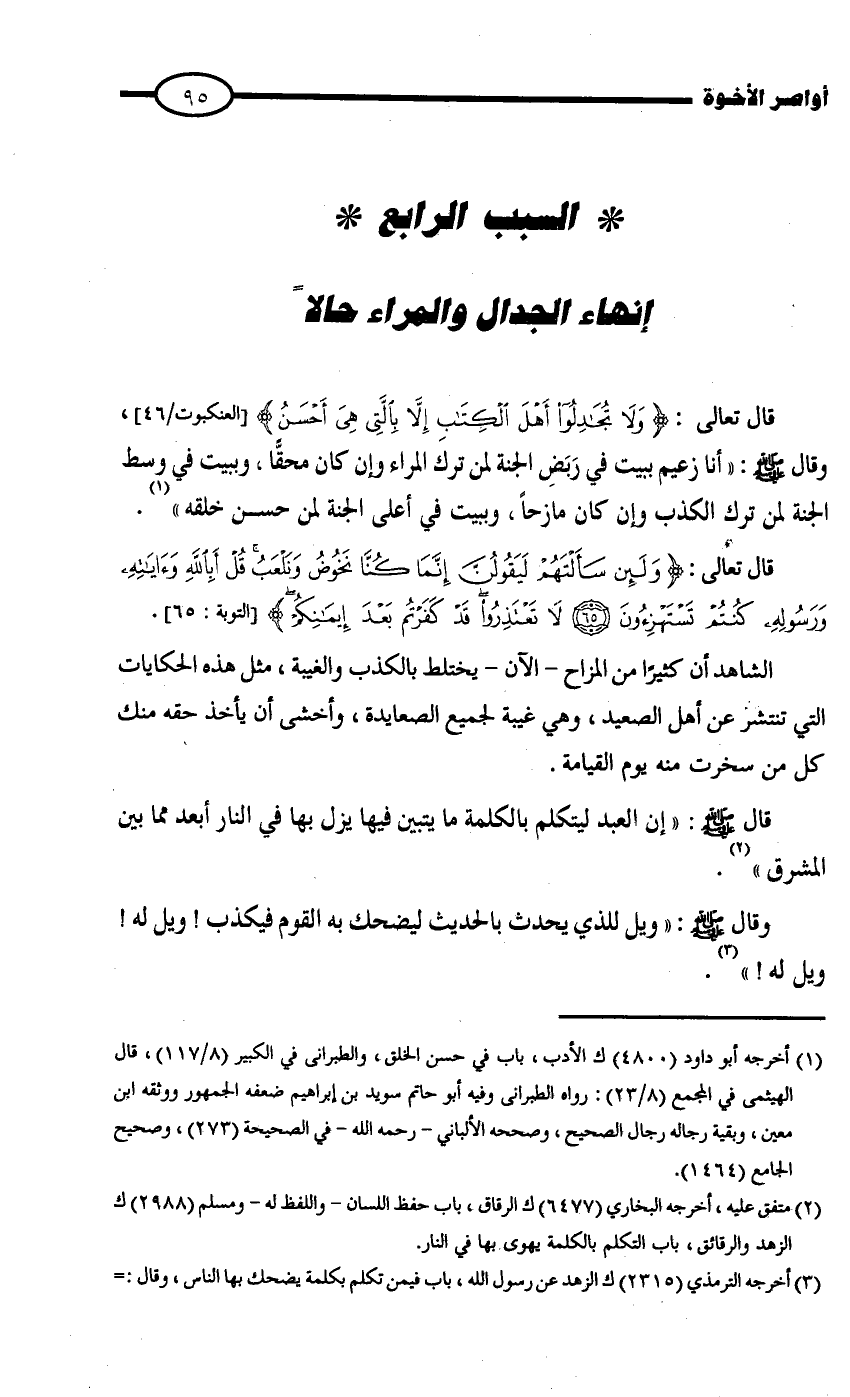 أواصر الأخوة ٩٥
* السبب الرابع *
إنهاء الجدال والمراء حالاً
قال تعالى : ﴿ وَلَا تُجَٰدِلُوٓا۟ أَهْلَ ٱلْكِتَٰبِ إِلَّا بِٱلَّتِى هِىَ أَحْسَنُ ﴾ [العنكبوت/٤٦] ،
وقال ﷺ : « أنا زعيم ببيت في رَبَضِ الجنة لمن ترك المراء وإن كان محقًّا ، وببيت في وسط
الجنة لمن ترك الكذب وإن كان مازحاً ، وببيت في أعلى الجنة لمن حسن خلقه » (١) .
قال تعالى : ﴿ وَلَئِن سَأَلْتَهُمْ لَيَقُولُنَّ إِنَّمَا كُنَّا نَخُوضُ وَنَلْعَبُ ۚ قُلْ أَبِٱللَّهِ وَءَايَٰتِهِۦ
وَرَسُولِهِۦ كُنتُمْ تَسْتَهْزِءُونَ ﴿٦٥﴾ لَا تَعْتَذِرُوا۟ ۖ قَدْ كَفَرْتُم بَعْدَ إِيمَٰنِكُمْ ۚ ﴾ [التوبة : ٦٥] .
الشاهد أن كثيرًا من المزاح – الآن – يختلط بالكذب والغيبة ، مثل هذه الحكايات
التي تنتشر عن أهل الصعيد ، وهي غيبة لجميع الصعايدة ، وأخشى أن يأخذ حقه منك
كل من سخرت منه يوم القيامة .
قال ﷺ : « إن العبد ليتكلم بالكلمة ما يتبين فيها يزل بها في النار أبعد مما بين
المشرق » (٢) .
وقال ﷺ : « ويل للذي يحدث بالحديث ليضحك به القوم فيكذب ! ويل له !
ويل له ! » (٣) .
(١) أخرجه أبو داود (٤٨٠٠) ك الأدب ، باب في حسن الخلق ، والطبرانى في الكبير (١١٧/٨) ، قال
الهيثمى في المجمع (٢٣/٨) : رواه الطبرانى وفيه أبو حاتم سويد بن إبراهيم ضعفه الجمهور ووثقه ابن
معين ، وبقية رجاله رجال الصحيح ، وصححه الألباني – رحمه الله – في الصحيحة (٢٧٣) ، وصحيح
الجامع (١٤٦٤).
(٢) متفق عليه ، أخرجه البخاري (٦٤٧٧) ك الرقاق ، باب حفظ اللسان – واللفظ له – ومسلم (٢٩٨٨) ك
الزهد والرقائق ، باب التكلم بالكلمة يهوى بها في النار.
(٣) أخرجه الترمذي (٢٣١٥) ك الزهد عن رسول الله ، باب فيمن تكلم بكلمة يضحك بها الناس ، وقال :=